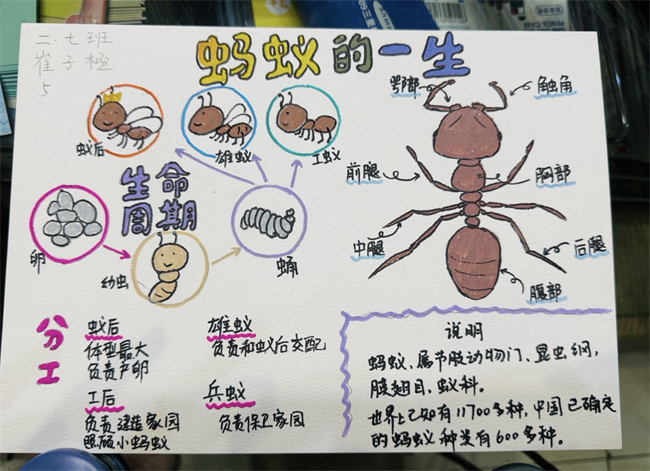 二.七班
崔子極
5
蚂蚁的一生
蚁后
雄蚁
工蚁
生命
周期
卵
幼虫
蛹
鄂部
触角
前腿
胸部
中腿
后腿
腹部
分工
蚁后
体型最大
负责产卵
雄蚁
负责和蚁后交配
工后
负责建造家园
照顾小蚂蚁
兵蚁
负责保卫家园
说明
蚂蚁、属节肢动物门、昆虫纲,
膜翅目、蚁科。
世界上已知有11700多种,中国已确定
的蚂蚁种类有600多种。